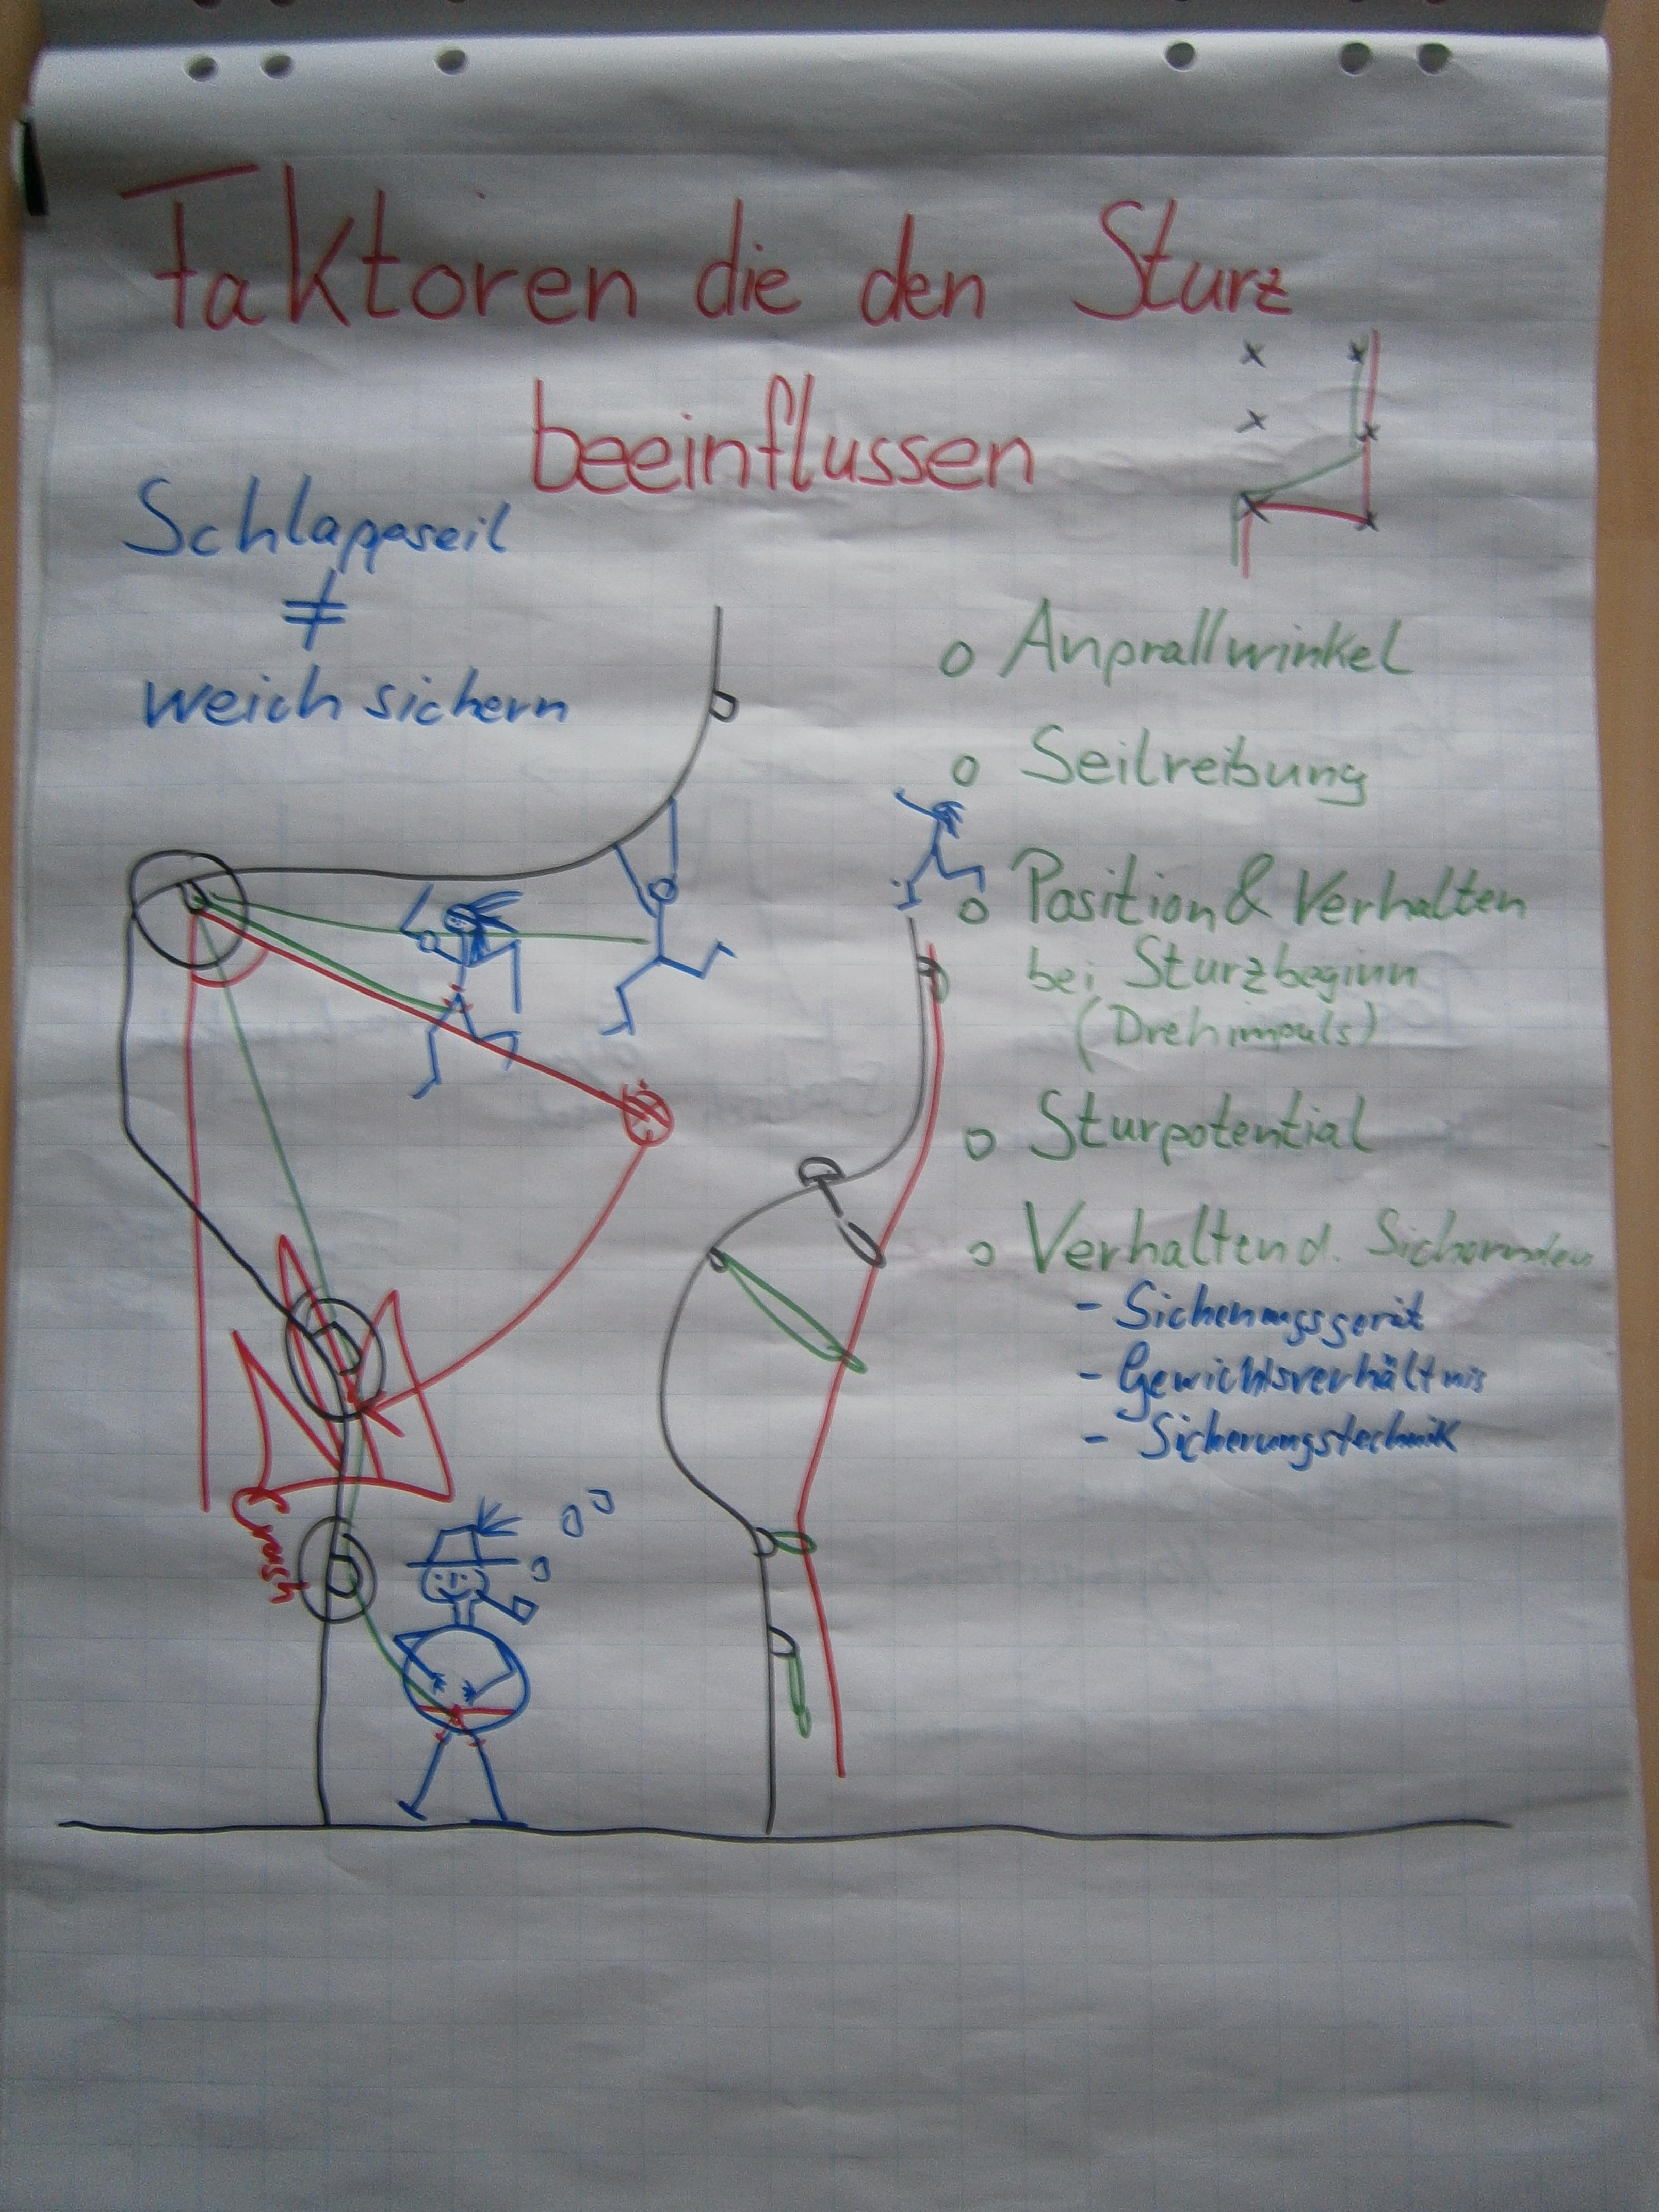 Faktoren die den Sturz
beeinflussen
Schlappseil
≠
weich sichern
o Anprallwinkel
o Seilreibung
o Position & Verhalten
bei Sturzbeginn
(Drehimpuls)
o Sturpotential
o Verhalten d. Sichernden
- Sicherungsgerät
- Gewichtsverhältnis
- Sicherungstechnik
Crash